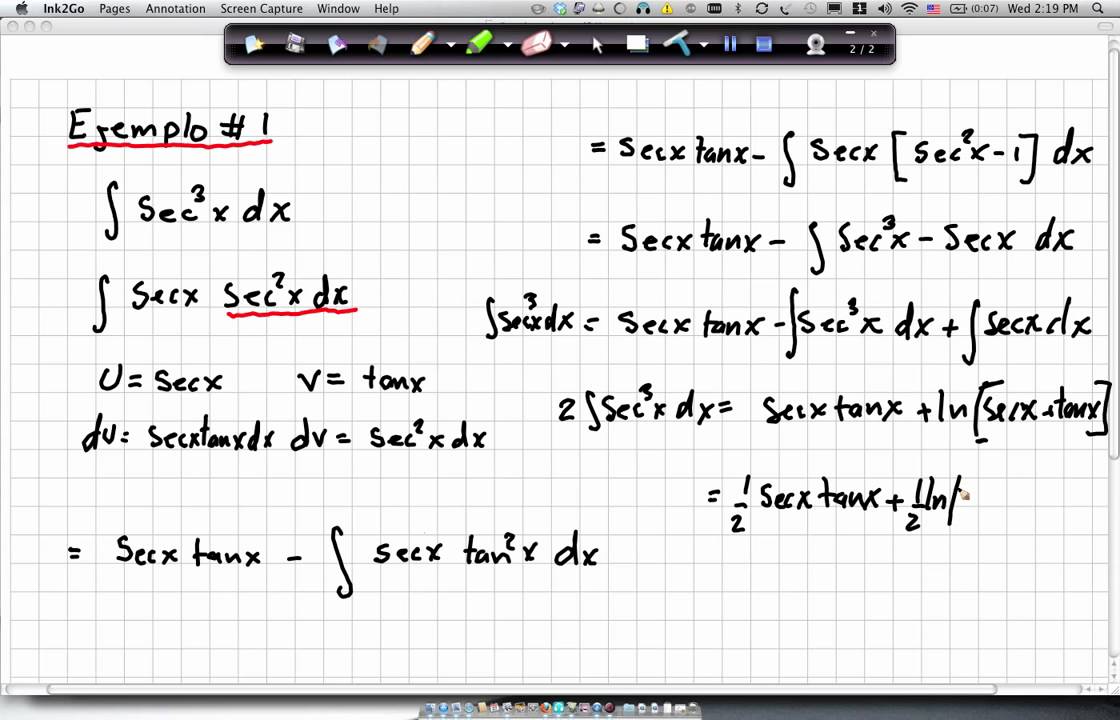 Ink2Go Pages Annotation Screen Capture Window Help (0:07) Wed 2:19 PM
2 / 2
Ejemplo # 1
∫ sec³x dx
∫ secx sec²x dx
U = secx V = tanx
du = secxtanxdx dv = sec²x dx
= secx tanx - ∫ secx tan²x dx
= secx tanx - ∫ secx [sec²x - 1] dx
= secx tanx - ∫ sec³x - secx dx
∫sec³xdx = secx tanx - ∫sec³x dx + ∫secxdx
2∫sec³x dx = secxtanx + ln[secx+tanx]
= 1/2 secx tanx + 1/2 ln|